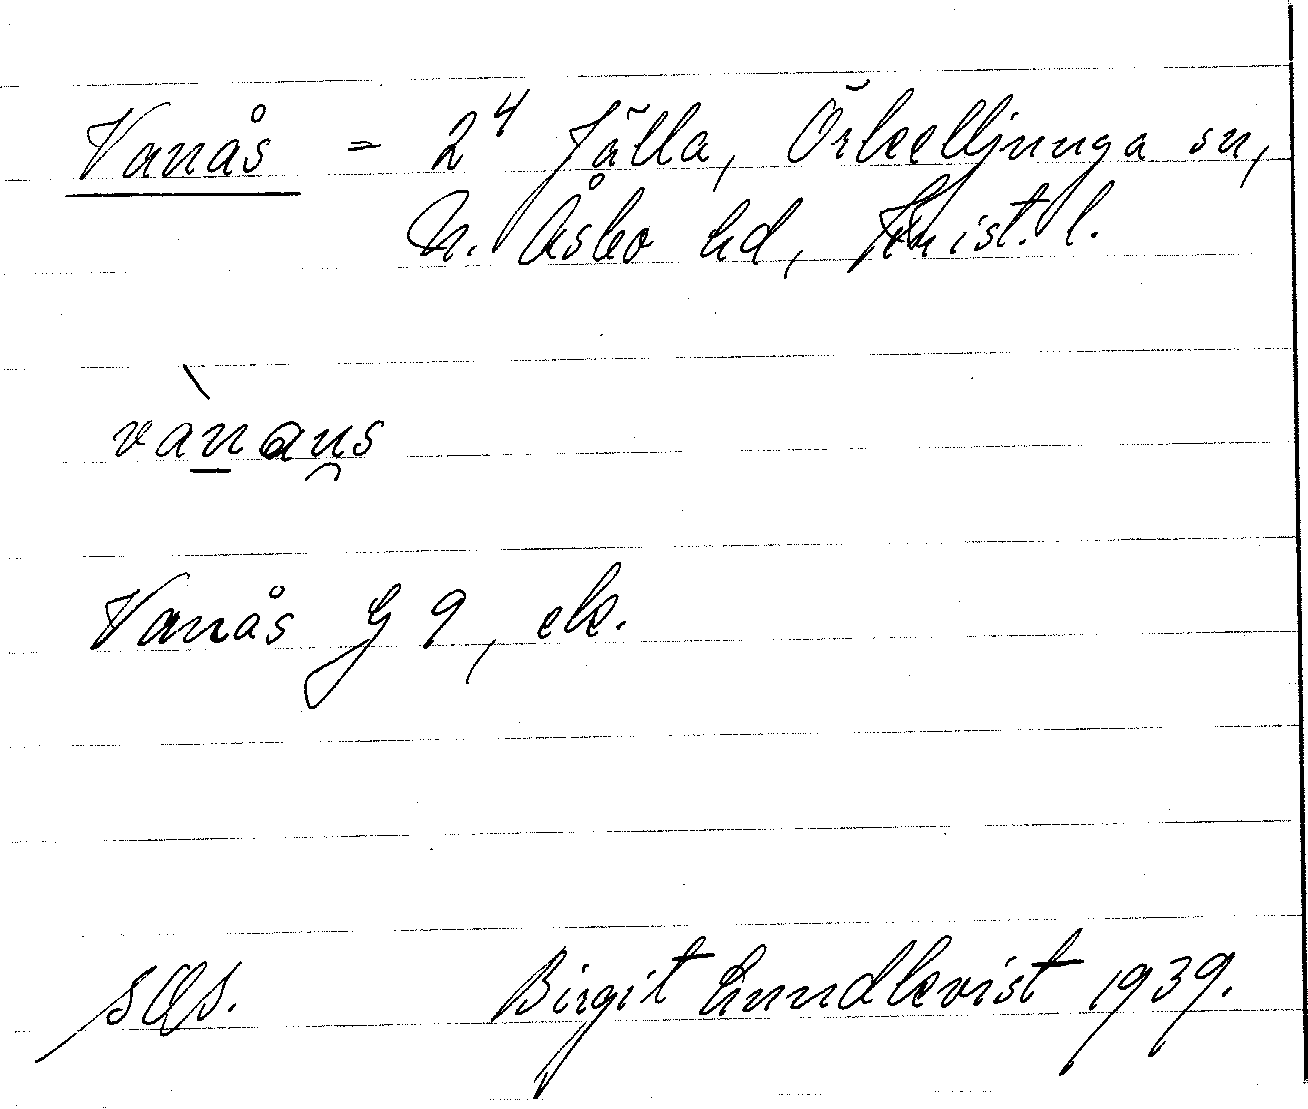 Vanås = 2⁴ Fälla, Örkelljunga sn,
N. Åsbo hd, Krist. l.
vànau̯s
Vanås G 9, ek.
Birgit Lundkvist 1939.